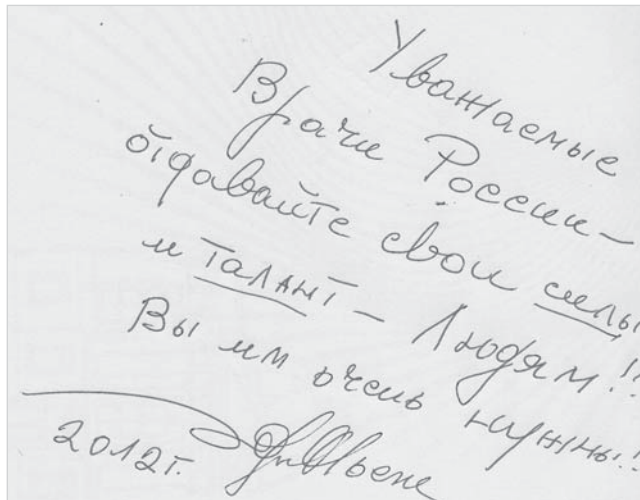 Уважаемые
Врачи России –
отдавайте свои силы
и талант – Людям!!
Вы им очень нужны!!
2012г.